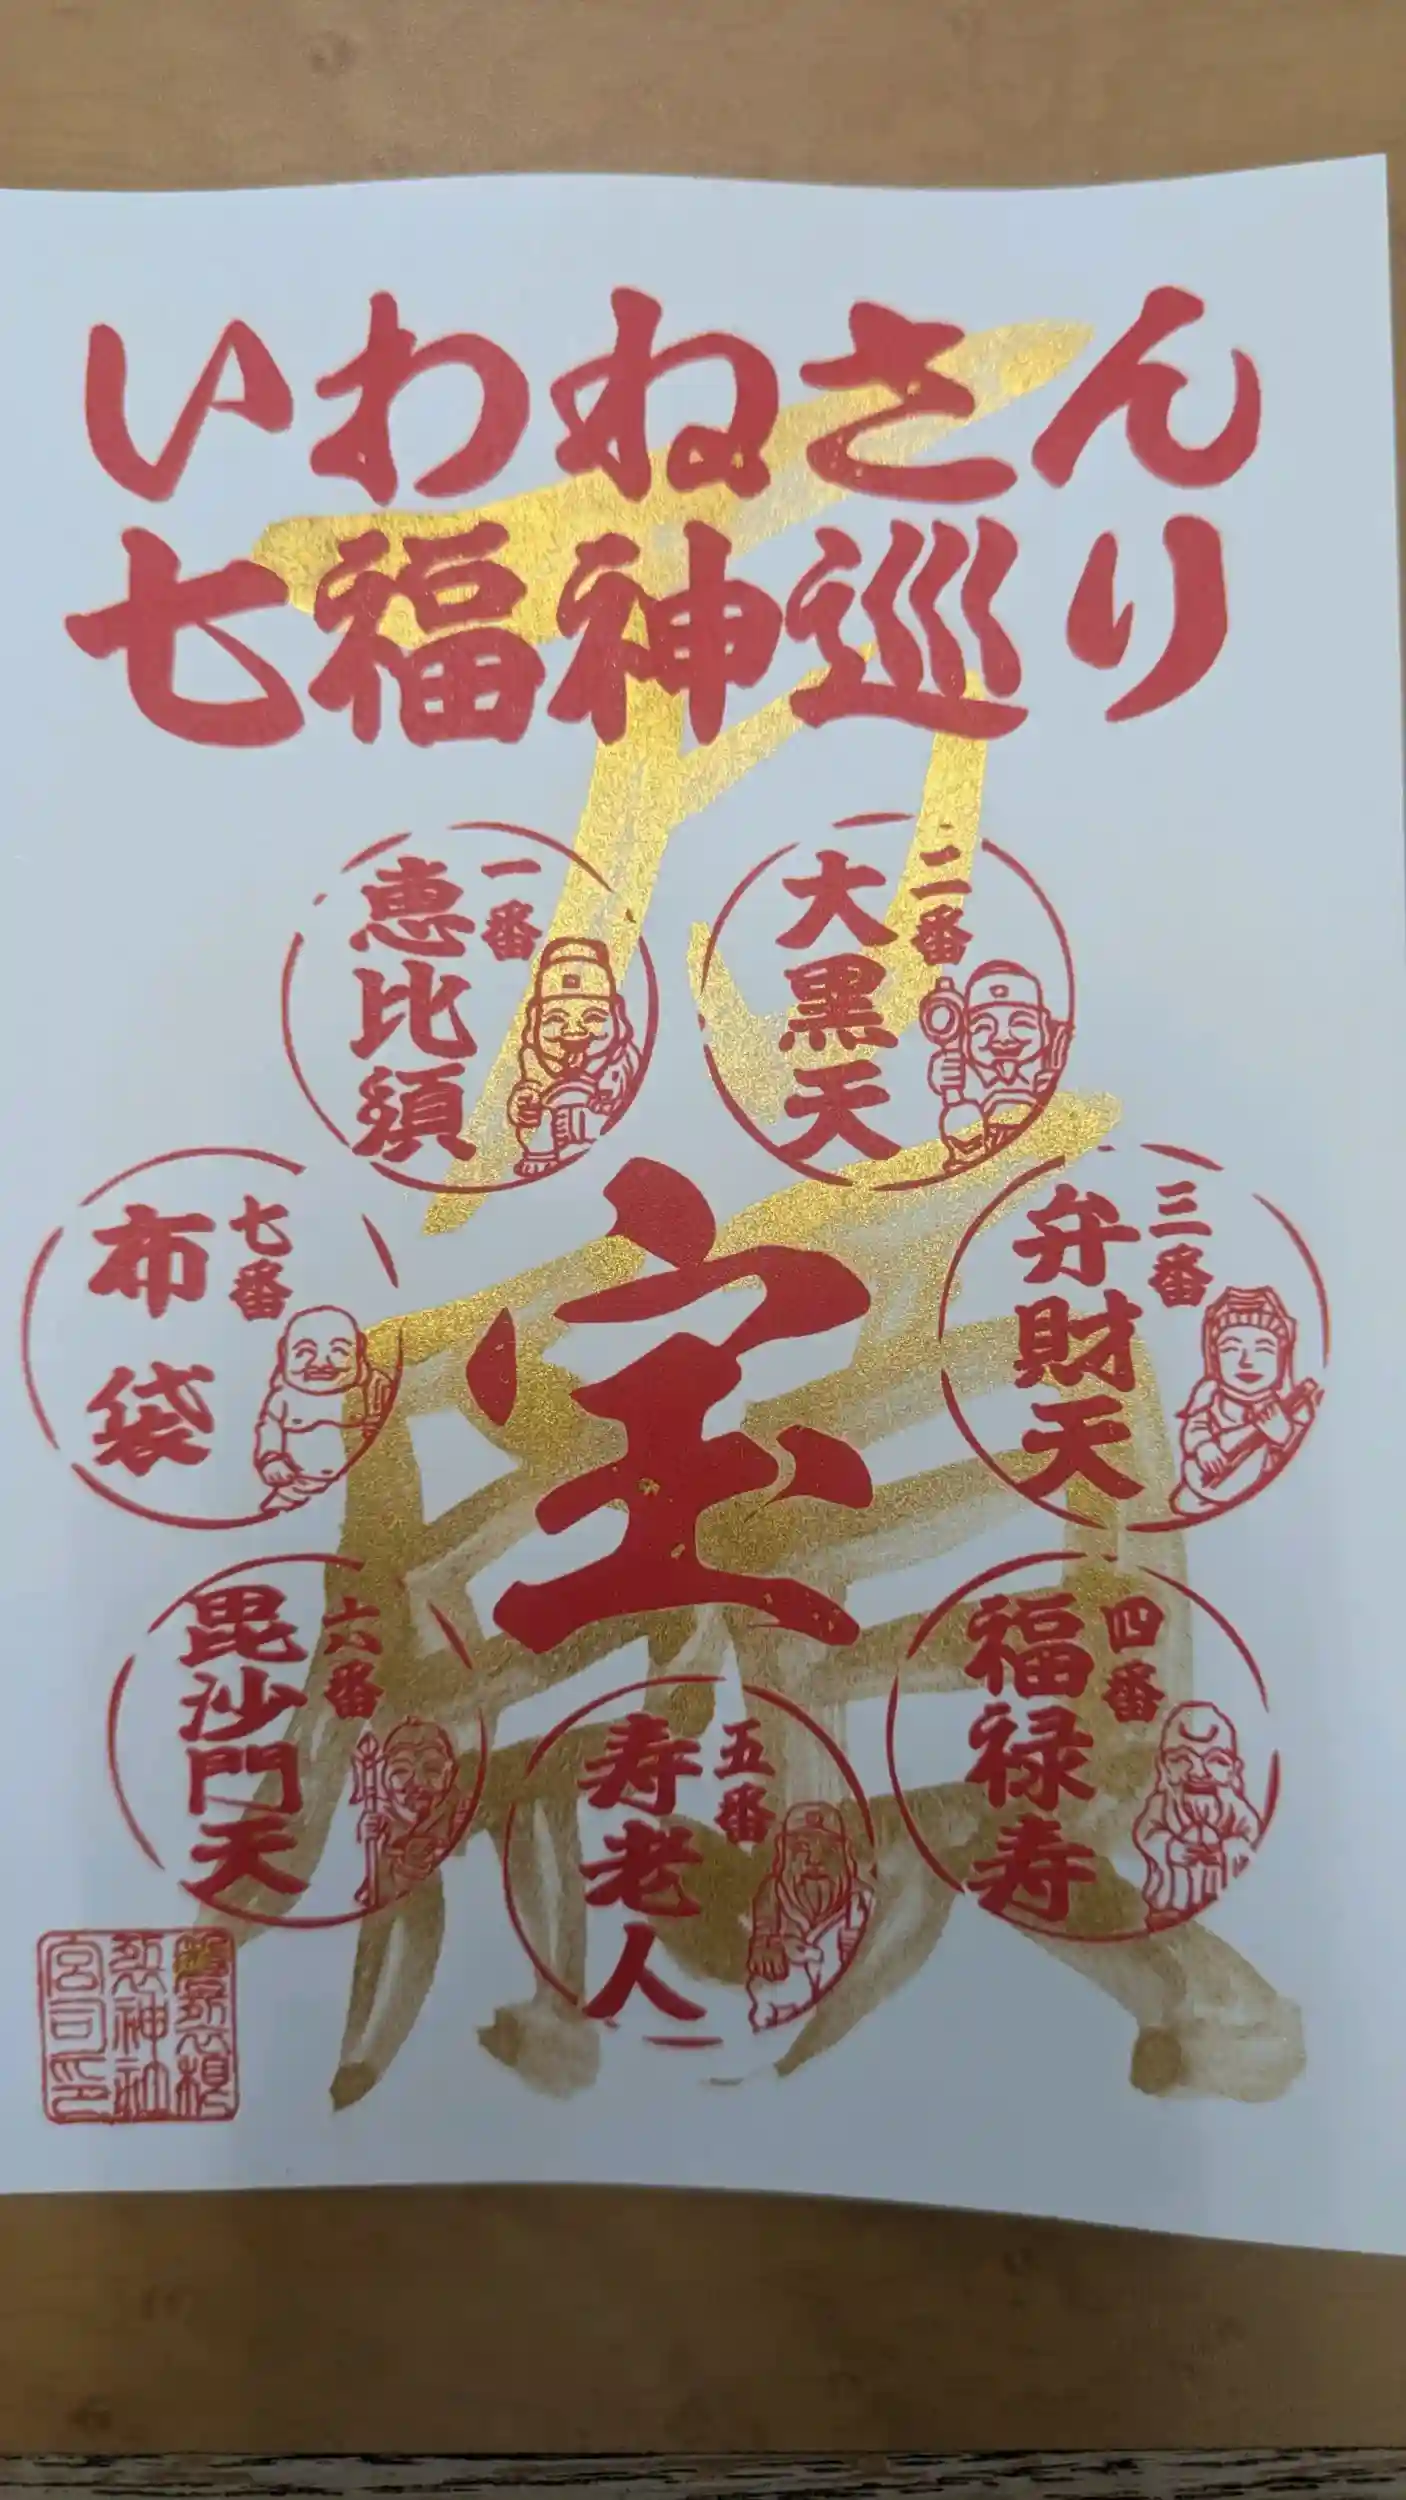 いわねさん
七福神巡り
万願
一番
恵比須
二番
大黒天
三番
弁財天
四番
福禄寿
五番
寿老人
六番
毘沙門天
七番
布袋
宝
神社
宮司印